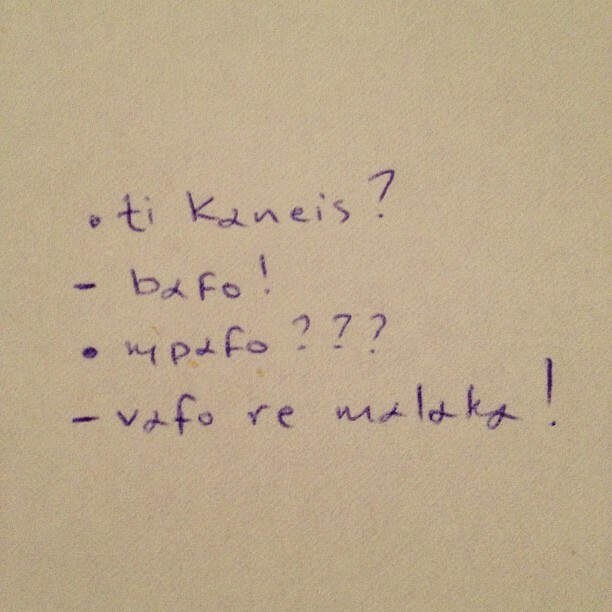 • ti kaneis?
- bafo!
• mpafo???
- vafo re malaka!